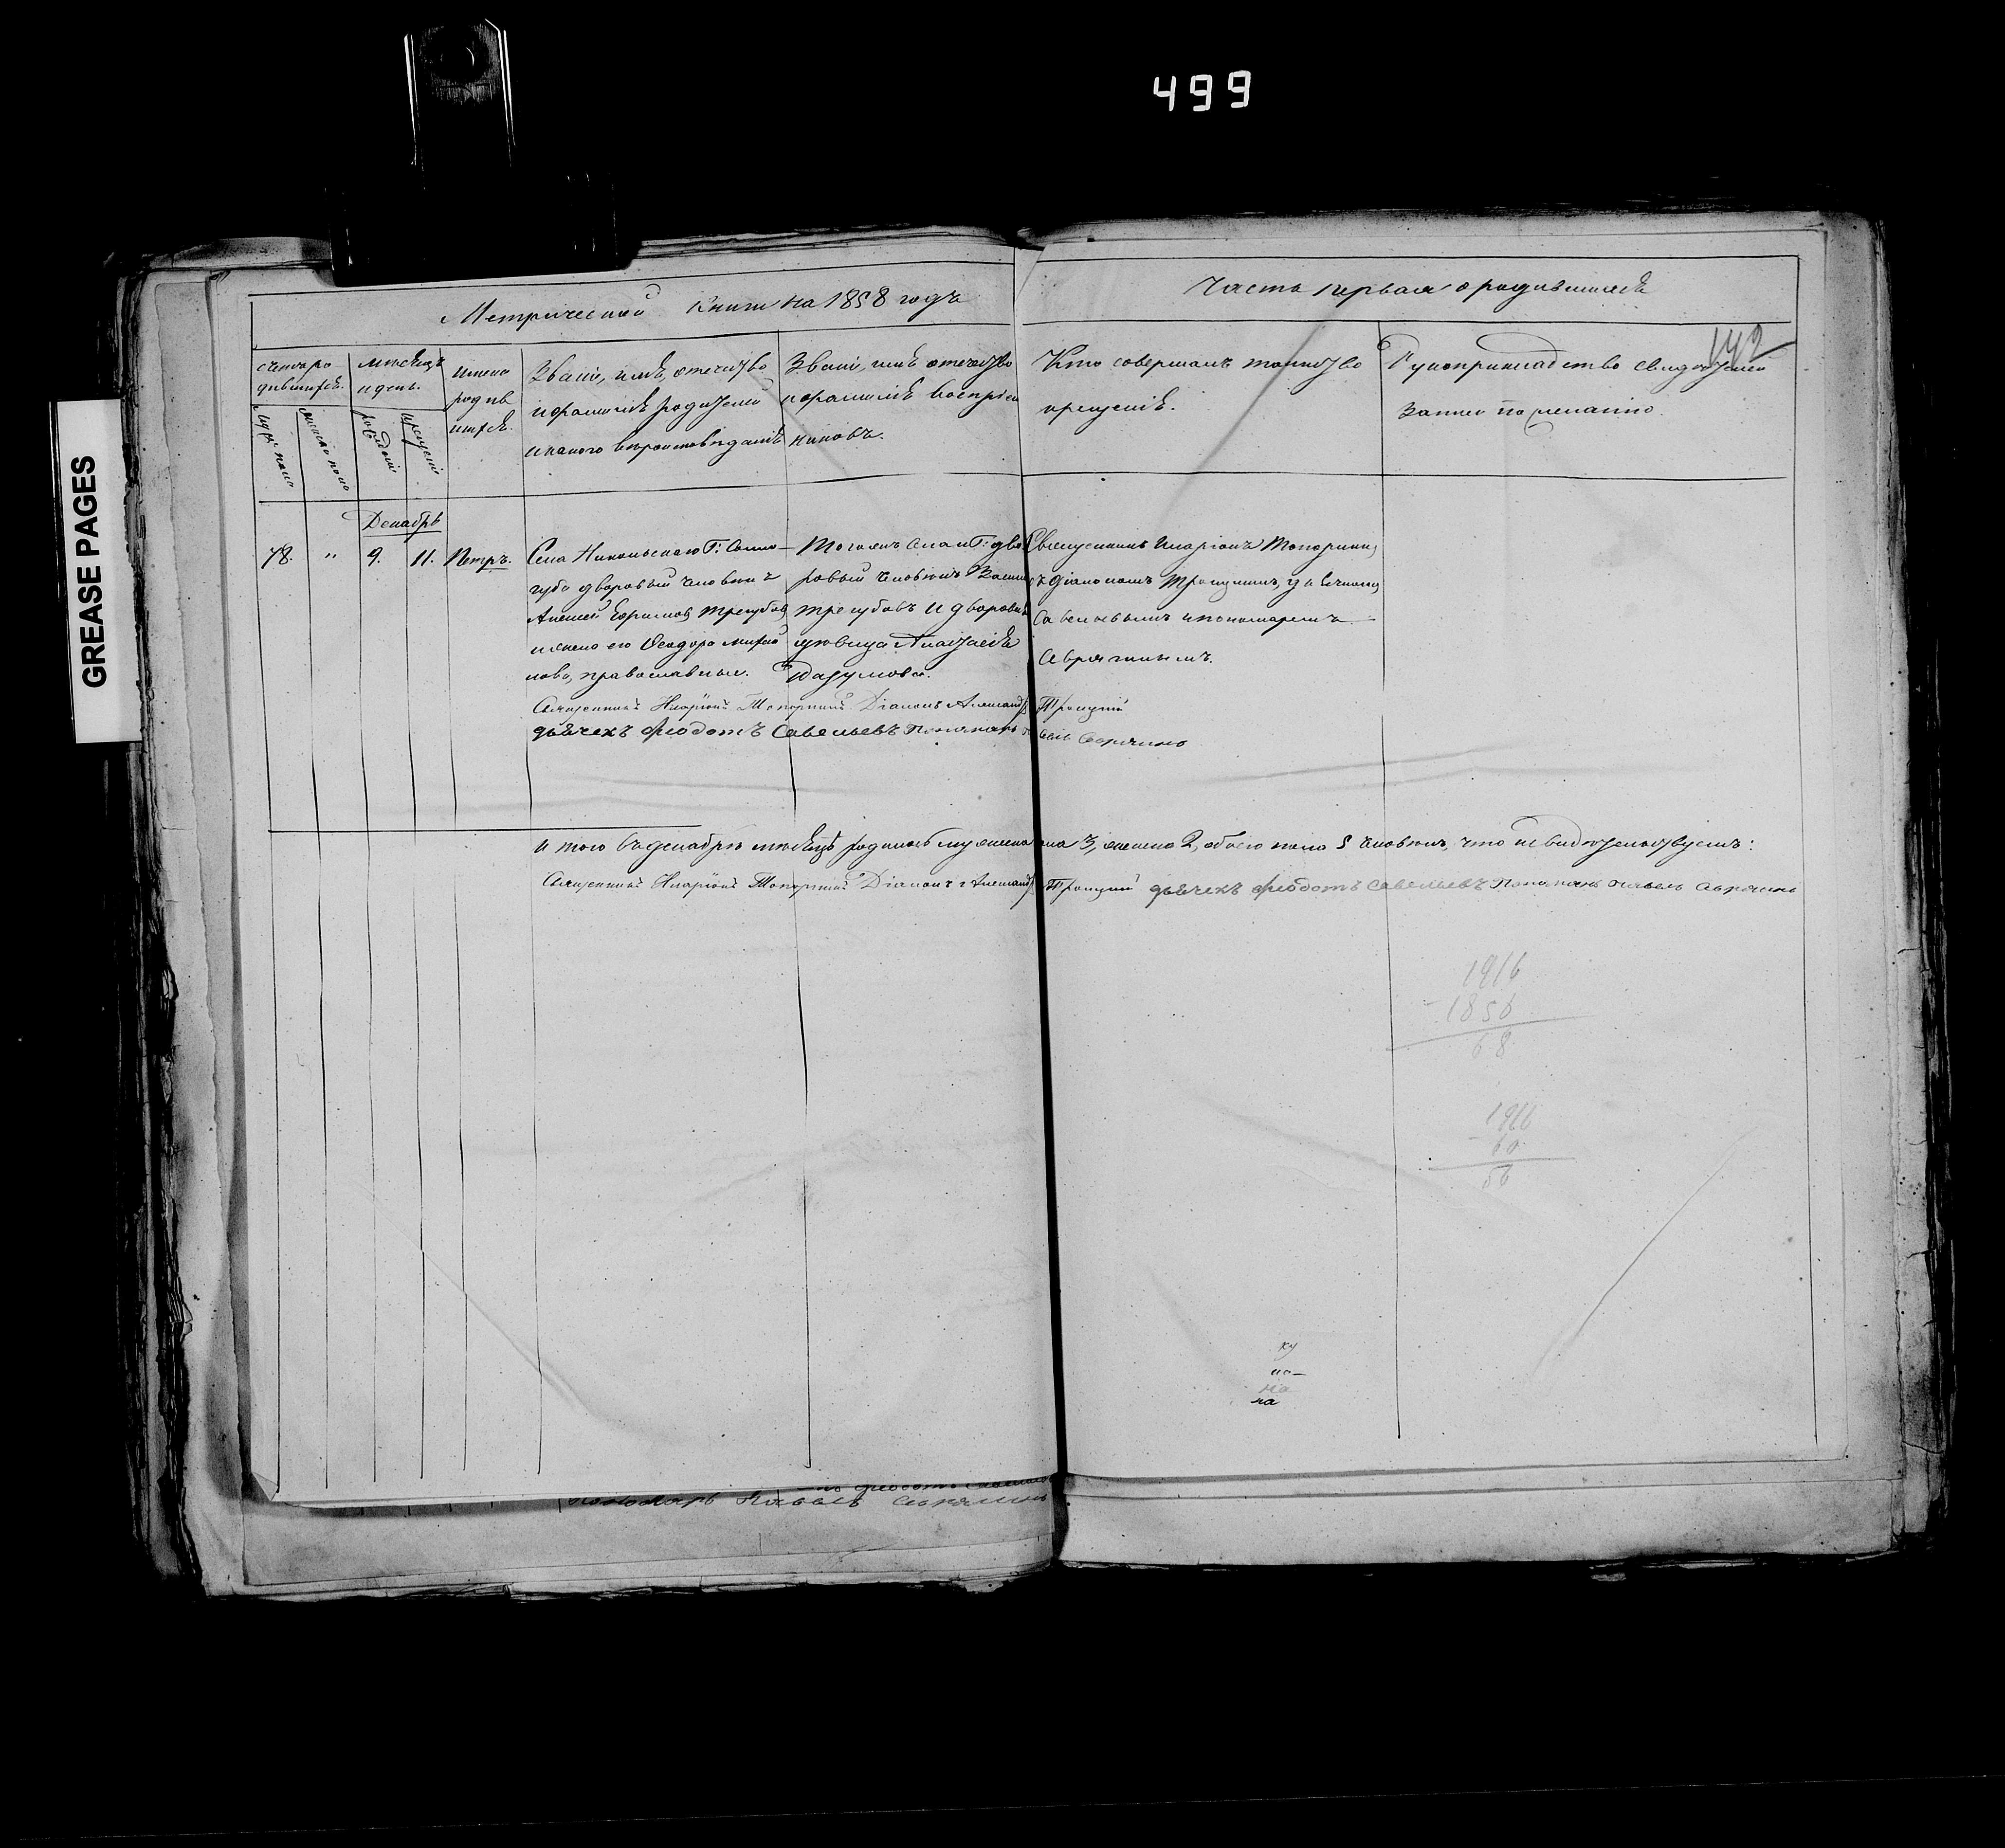 499
GREASE PAGES
Метрической Книги на 1858 годъ
Часть первая о родившихся
142
Счетъ ро
дившихся.
Мѣсяцъ
и день.
Имена
родив
шихся.
Званіе, имя, отечество
и фамилія родителей
и какого вѣроисповѣданія
Званіе, имя отечество
и фамилія воспріем
никовъ.
Кто совершалъ таинство
крещенія.
Рукоприкладство свидѣтелей
записи по желанію.
Муж: пола
Женска пола
рожденія
крещенія
Декабрь
78. " 9. 11. Петръ.
Села Никольскаго Г: Солло-
губа дворовый человѣкъ
Алексей Ефимовъ Трегубовъ
и жена его Ѳеодора Михай
лова, православные.
Того же села и Г: дво
ровый человѣкъ
Трегубовъ и дворовая
дѣвица Анастасія
Священникъ Иларіонъ Топорнинъ
съ діакономъ Троицкимъ, дьячкомъ
Савельевымъ и пономаремъ
Священникъ Иларіонъ Топорнинъ Діаконъ Александръ Троицкій
дьячекъ Феодотъ Савельевъ Пономарь
И того въ декабрѣ мѣсяцѣ родилось мужеска пола 3, женска 2, обоего пола 5 человѣкъ, что и свидѣтельствуемъ:
Священникъ Иларіонъ Топорнинъ Діаконъ Александръ Троицкій дьячекъ Феодотъ Савельевъ Пономарь Павелъ
1916
- 1856
68
1916
- 60
56
ку
на
на
Пономарь Павелъ